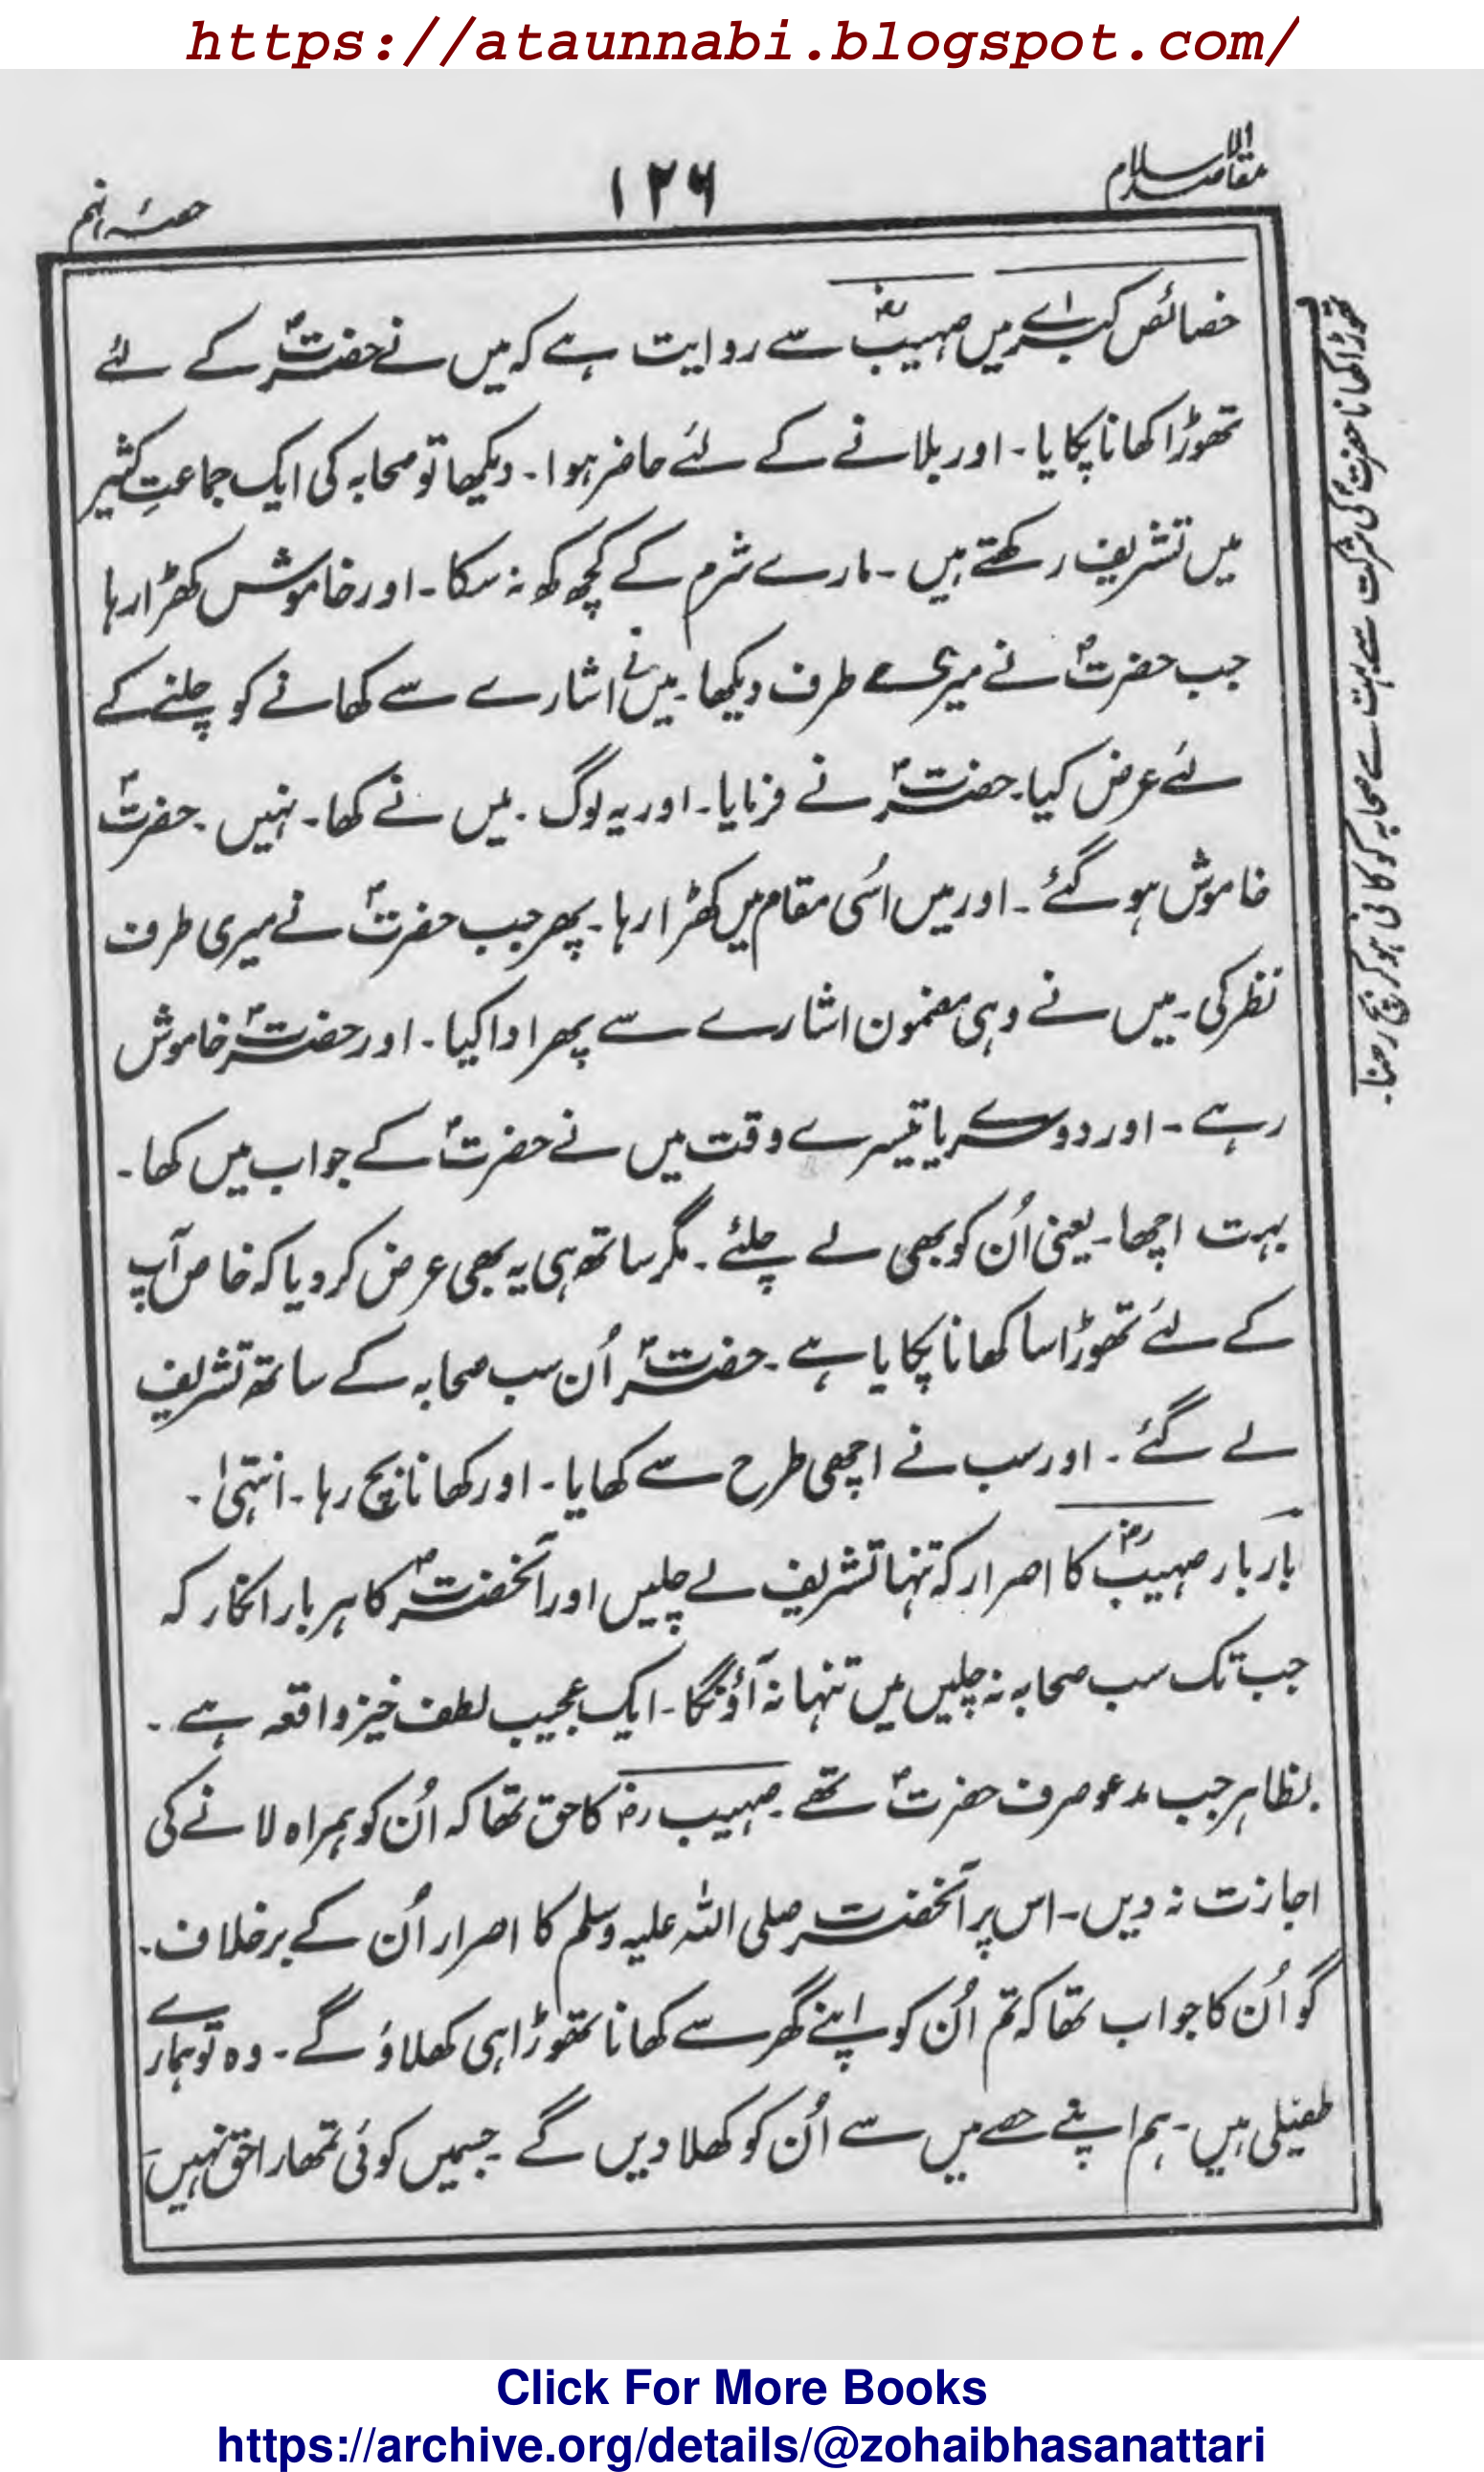 https://ataunnabi.blogspot.com/
مقاصد الاسلام
۱۲۶
حصۂ نہم
خصائص کبریٰ میں صہیبؓ سے روایت ہے کہ میں نے حضرتؐ کے لئے
تھوڑا کھانا پکایا۔ اور بلانے کے لئے حاضر ہوا۔ دیکھا تو صحابہ کی ایک جماعتِ کثیر
میں تشریف رکھتے ہیں۔ مارے شرم کے کچھ کھ نہ سکا۔ اور خاموش کھڑا رہا
جب حضرتؐ نے میری طرف دیکھا۔ میں نے اشارے سے کھانے کو چلنے کے
لئے عرض کیا۔ حضرتؐ نے فرمایا۔ اور یہ لوگ۔ میں نے کھا۔ نہیں۔ حضرتؐ
خاموش ہو گئے۔ اور میں اُسی مقام میں کھڑا رہا۔ پھر جب حضرتؐ نے میری طرف
نظر کی۔ میں نے وہی مضمون اشارے سے پھر ادا کیا۔ اور حضرتؐ خاموش
رہے۔ اور دوسرے یا تیسرے وقت میں نے حضرتؐ کے جواب میں کھا۔
بہت اچھا۔ یعنی اُن کو بھی لے چلئے۔ مگر ساتھ ہی یہ بھی عرض کر دیا کہ خاص آپ
کے لئے تھوڑا سا کھانا پکایا ہے۔ حضرتؐ اُن سب صحابہ کے ساتھ تشریف
لے گئے۔ اور سب نے اچھی طرح سے کھایا۔ اور کھانا بچ رہا۔ انتہیٰ۔
بار بار صہیبؓ کا اصرار کہ تنہا تشریف لے چلیں اور آنحضرتؐ کا ہر بار انکار کہ
جب تک سب صحابہ نہ چلیں میں تنہا نہ آؤنگا۔ ایک عجیب لطف خیز واقعہ ہے۔
بظاہر جب مدعو صرف حضرتؐ تھے۔ صہیب رضؓ کا حق تھا کہ اُن کو ہمراہ لانے کی
اجازت نہ دیں۔ اس پر آنحضرت صلی اللہ علیہ وسلم کا اصرار اُن کے برخلاف۔
گو اُن کا جواب تھا کہ تم اُن کو اپنے گھر سے کھانا تھوڑا ہی کھلاؤ گے۔ وہ تو ہمارے
طفیلی ہیں۔ ہم اپنے حصے میں سے اُن کو کھلا دیں گے۔ جسمیں کوئی تمھارا حق نہیں
تھوڑا کھانا حضرتؐ کی شرکت سے بہت سے صحابہ کو کافی ہو کر بچ رہنا۔
Click For More Books
https://archive.org/details/@zohaibhasanattari